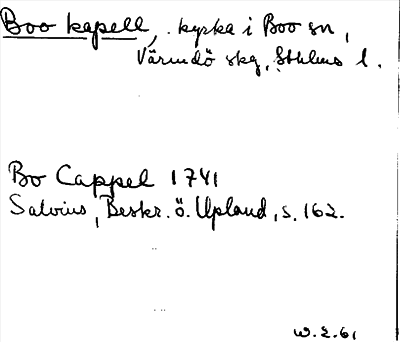 Boo kapell, kyrka i Boo sn,
Värmdö skg, Sthlms l.
Bo Cappel 1741
Salvius, Beskr. ö. Upland, s. 162.
W.Z.61